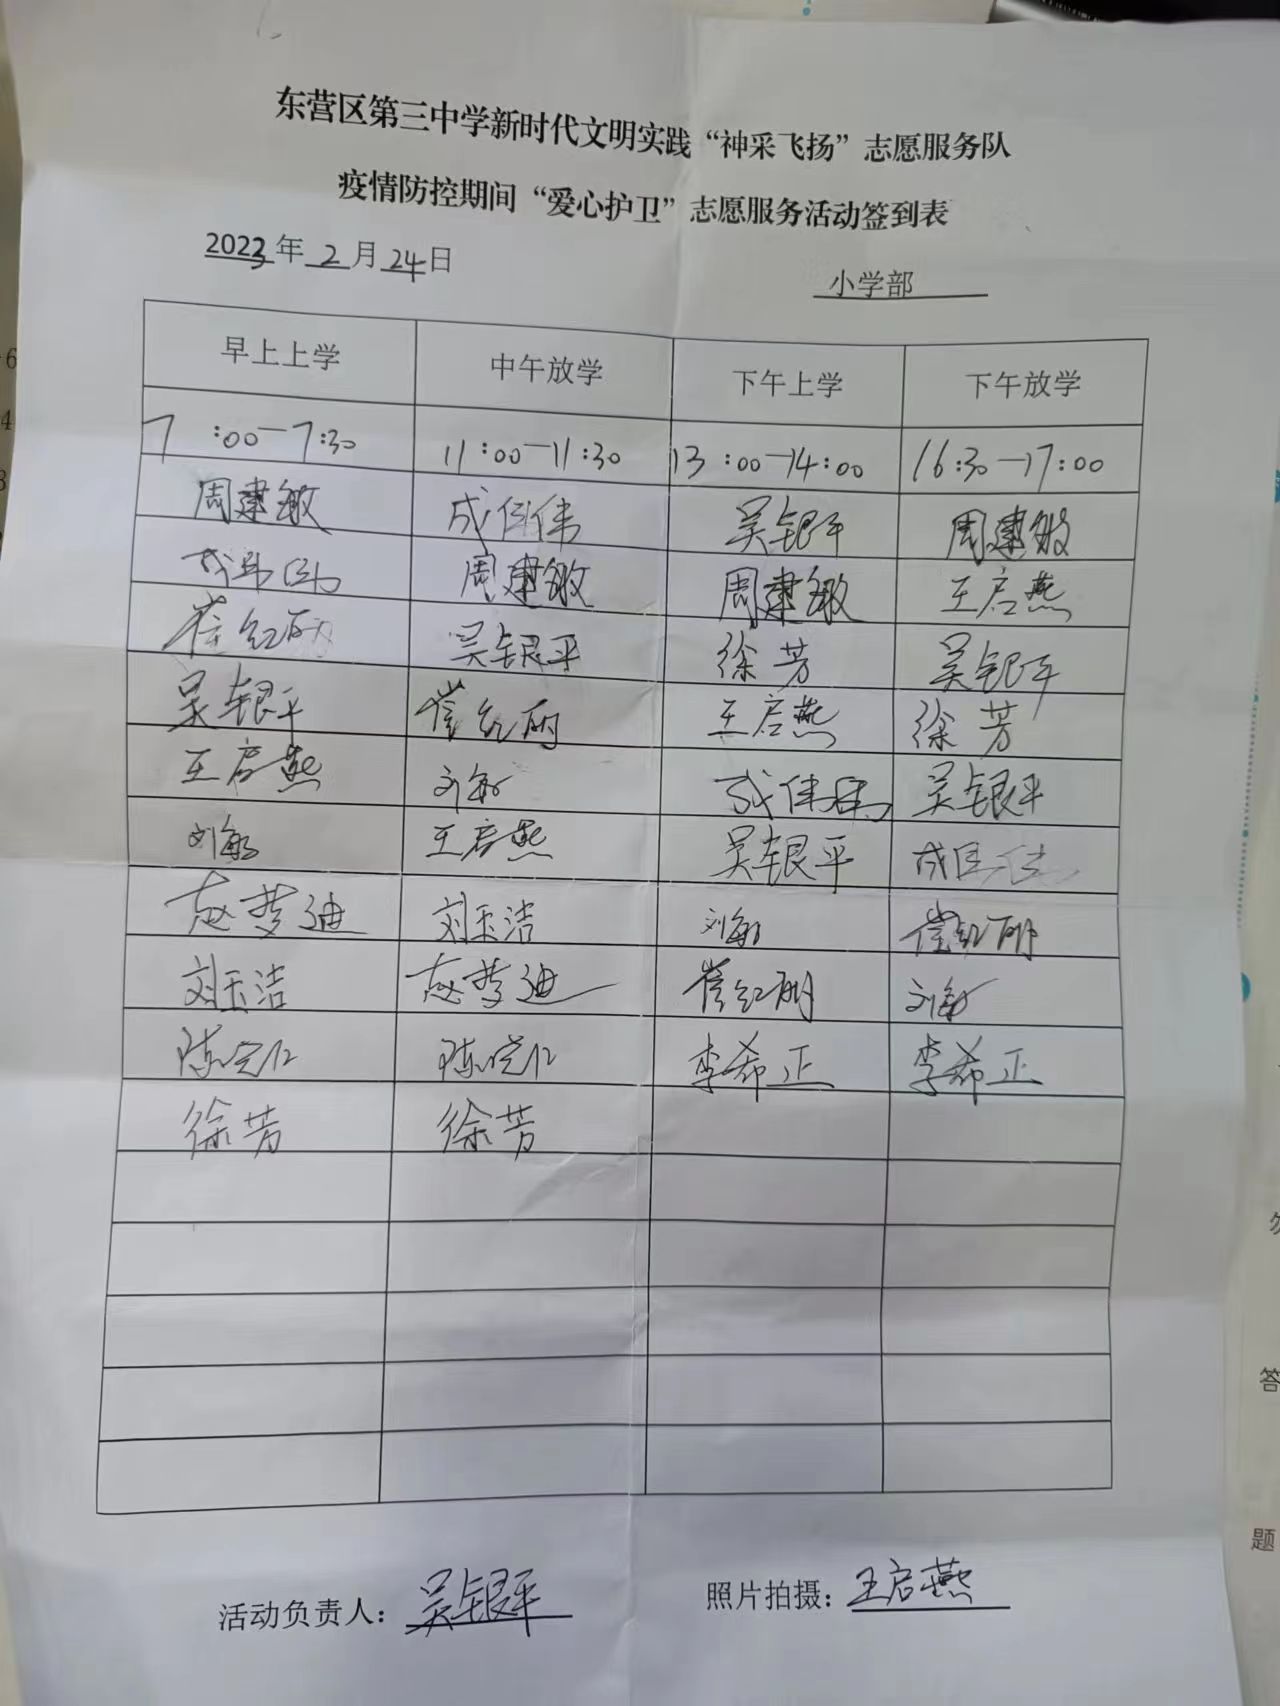 东营区第三中学新时代文明实践“神采飞扬”志愿服务队
疫情防控期间“爱心护卫”志愿服务活动签到表
2023年2月24日
小学部
早上上学 中午放学 下午上学 下午放学
7:00—7:30 11:00—11:30 13:00—14:00 16:30—17:00
周建敏 吴银平 周建敏
周建敏 周建敏 王启燕
崔红丽 吴银平 徐芳 吴银平
吴银平 崔红丽 王启燕 徐芳
王启燕 刘敏 吴银平
刘敏 王启燕 吴银平
赵梦迪 刘玉洁 刘敏 崔红丽
刘玉洁 赵梦迪 崔红丽 刘敏
李希正 李希正
徐芳 徐芳
活动负责人：吴银平
照片拍摄：王启燕
答
题